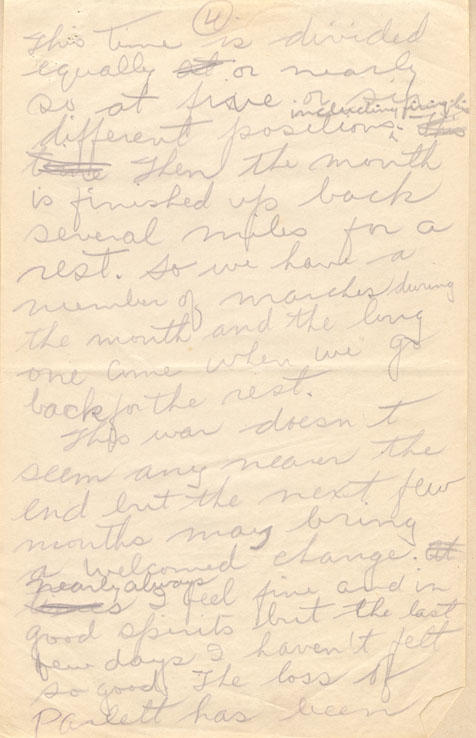 4
This time is divided
equally at or nearly
so at five or six
different positions, including firing li this
time Then the month
is finished up back
several miles for a
rest. So we have a
number of marches during
the month and the long
one came when we go
back for the rest.
This war doesn't
seem any nearer the
end but the next few
months may bring
a welcomed change. at
nearly always
I feel fine and in
good spirits but the last
few days I haven't felt
so good. The loss of
Parlett has been